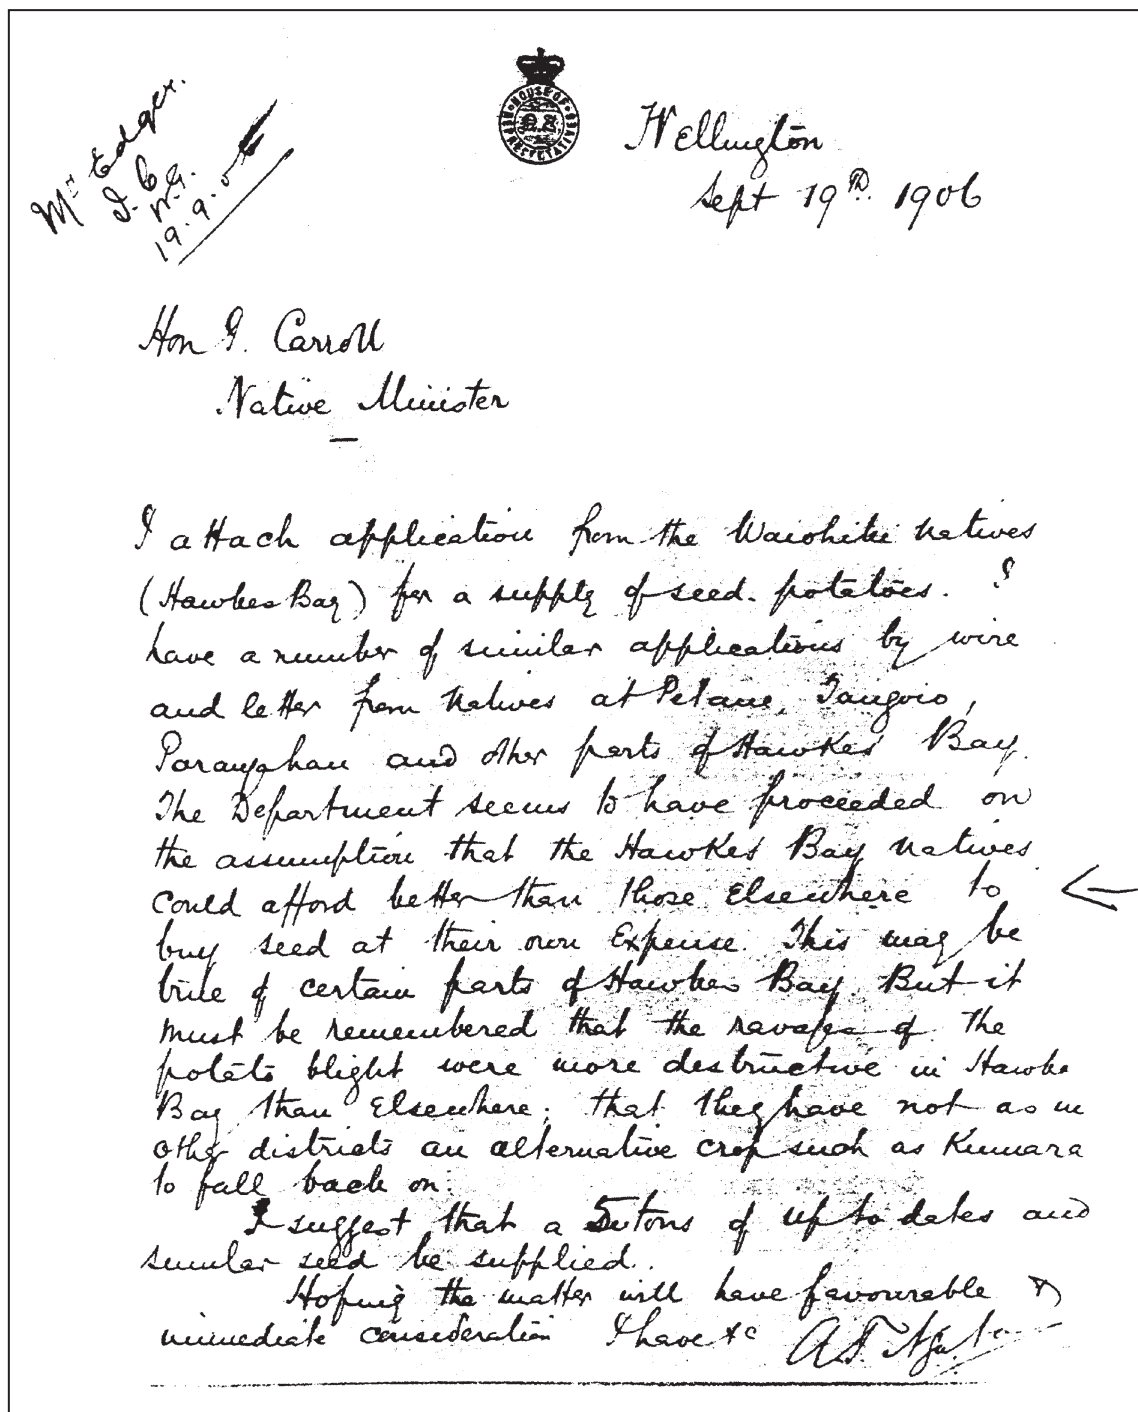 Mr Edger.
J. C
N.A.
19.9.06
HOUSE OF REPRESENTATIVES
Wellington
Sept 19th. 1906
Hon J. Carroll
Native Minister
I attach application from the Waiohiki Natives
(Hawkes Bay) for a supply of seed. potatoes. I
have a number of similar applications by wire
and letter from Natives at Petane, Tangoio,
Porangahau and other parts of Hawkes' Bay.
The Department seems to have proceeded on
the assumption that the Hawkes' Bay natives
could afford better than those Elsewhere to
buy seed at their own Expense. This may be
true of certain parts of Hawkes Bay. But it
must be remembered that the ravages of the
potato blight were more destructive in Hawke
Bay than Elsewhere; that they have not as in
other districts an alternative crop such as Kumara
to fall back on.
I suggest that a 5 tons of up to dates and
similar seed be supplied.
Hoping the matter will have favourable &
immediate consideration I have &c A.T. Ngata